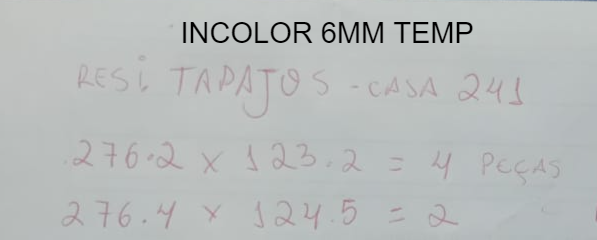 INCOLOR 6MM TEMP
RESi TAPAJOS - CASA 241
276.2 x 123.2 = 4 PEÇAS
276.4 x 124.5 = 2